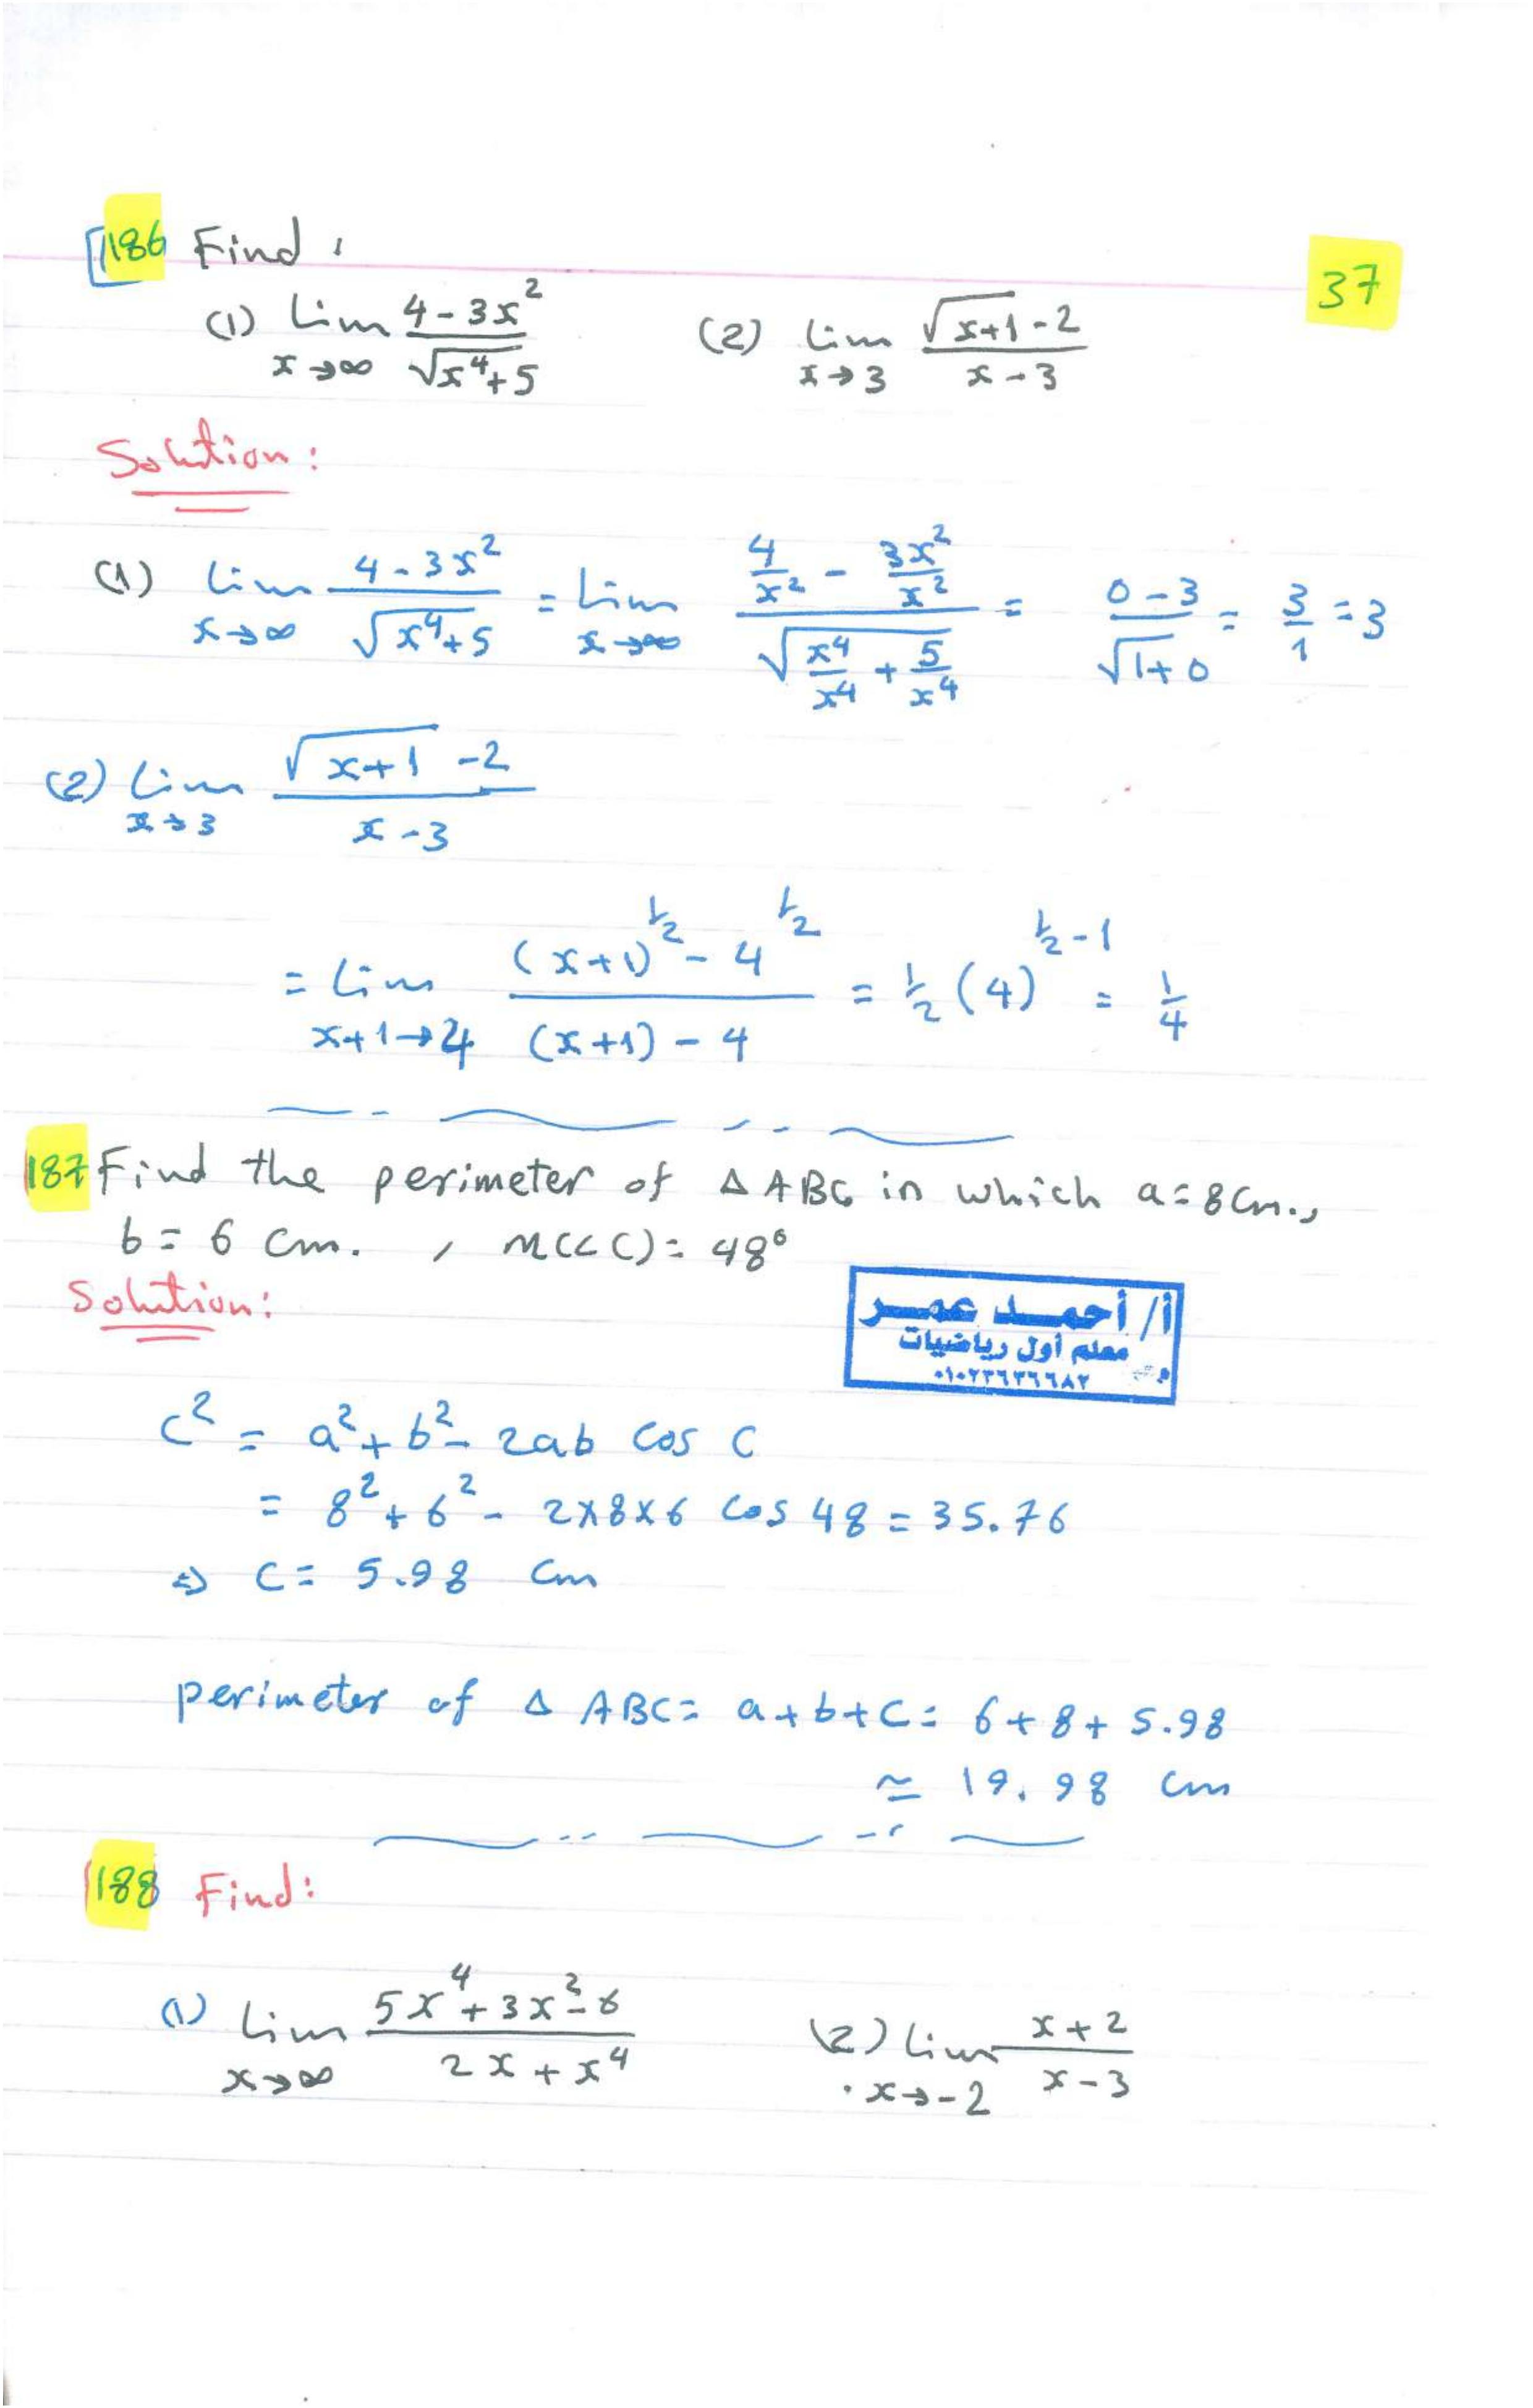 186 Find :
37
(1) Lim x→∞ (4-3x²)/√(x⁴+5) (2) Lim x→3 (√(x+1) -2)/(x-3)
Solution:
(1) Lim x→∞ (4-3x²)/√(x⁴+5) = Lim x→∞ (4/x² - 3x²/x²)/√(x⁴/x⁴ + 5/x⁴) = (0-3)/√(1+0) = 3/1 = 3
(2) Lim x→3 (√(x+1) -2)/(x-3)
= Lim x+1→4 ((x+1)^½ - 4^½)/((x+1) - 4) = ½ (4)^(½-1) = 1/4
187 Find the perimeter of Δ ABC in which a=8cm.,
b= 6 cm. , m(∠C)= 48°
Solution:
أ/ أحمد عمر
معلم أول رياضيات
٠١٠٢٢٦٣٦٦٨٢
c² = a²+b²- 2ab cos C
= 8²+6² - 2×8×6 cos 48 = 35.76
⇒ C= 5.98 cm
perimeter of Δ ABC= a+b+C= 6+8+5.98
≃ 19.98 cm
188 Find:
(1) Lim x→∞ (5x⁴+3x³-6)/(2x+x⁴) (2) Lim x→-2 (x+2)/(x-3)